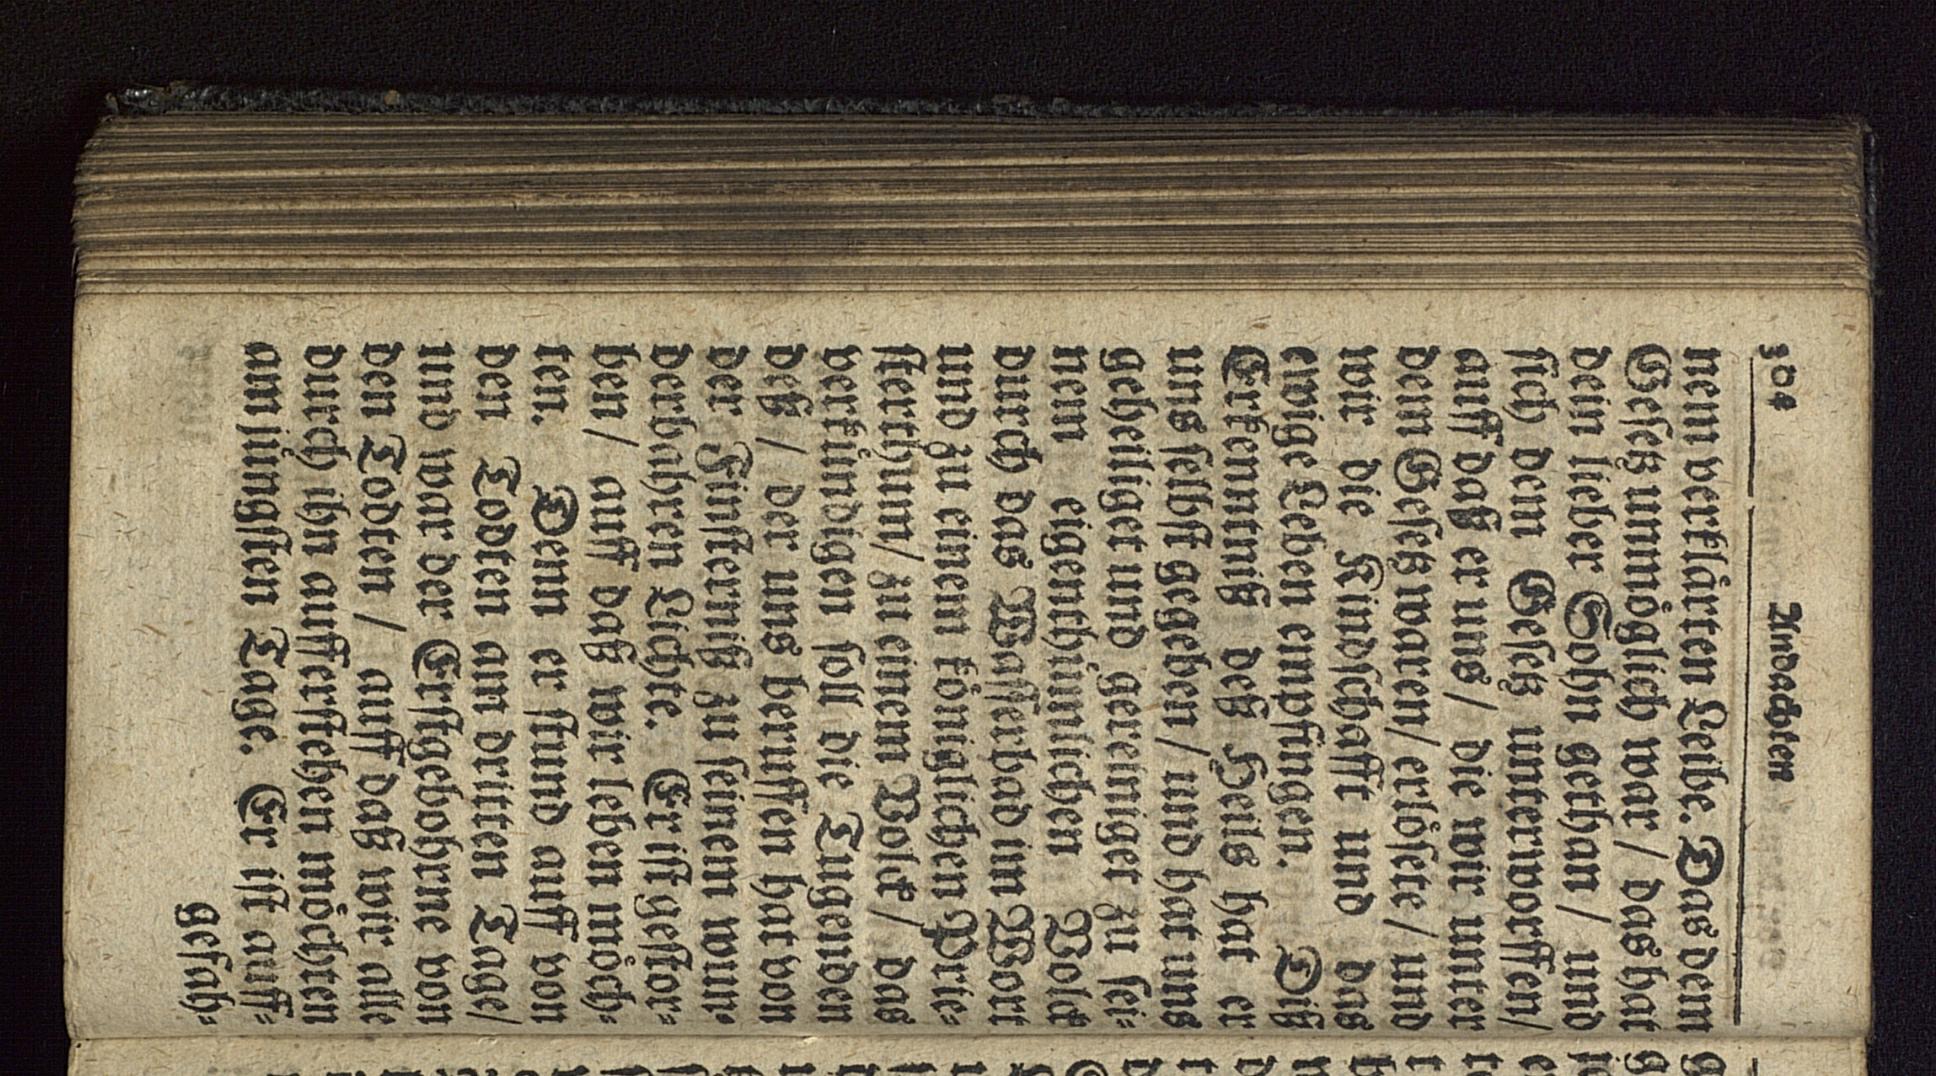 304 Andachten
nem verklärten Leibe. Das dem
Gesetz unmöglich war / das hat
dein lieber Sohn gethan / und
sich dem Gesetz unterworffen /
auff daß er uns / die wir unter
dem Gesetz waren / erlösete / und
wir die Kindschafft und das
ewige Leben empfingen. Diß
Erkenntniß deß Heils hat er
uns selbst gegeben / und hat uns
geheiliget und gereiniget zu sei-
nem eigenthümlichen Volck
durch das Wasserbad im Wort
und zu einem königlichen Prie-
sterthum / zu einem Volck / das
verkündigen soll die Tugenden
deß / der uns beruffen hat von
der Finsterniß zu seinem wun-
derbahren Lichte. Er ist gestor-
ben / auff daß wir leben möch-
ten. Denn er stund auff von
den Todten am dritten Tage /
und war der Erstgebohrne von
den Todten / auff daß wir alle
durch ihn aufferstehen möchten
am jüngsten Tage. Er ist auff-
gefah-